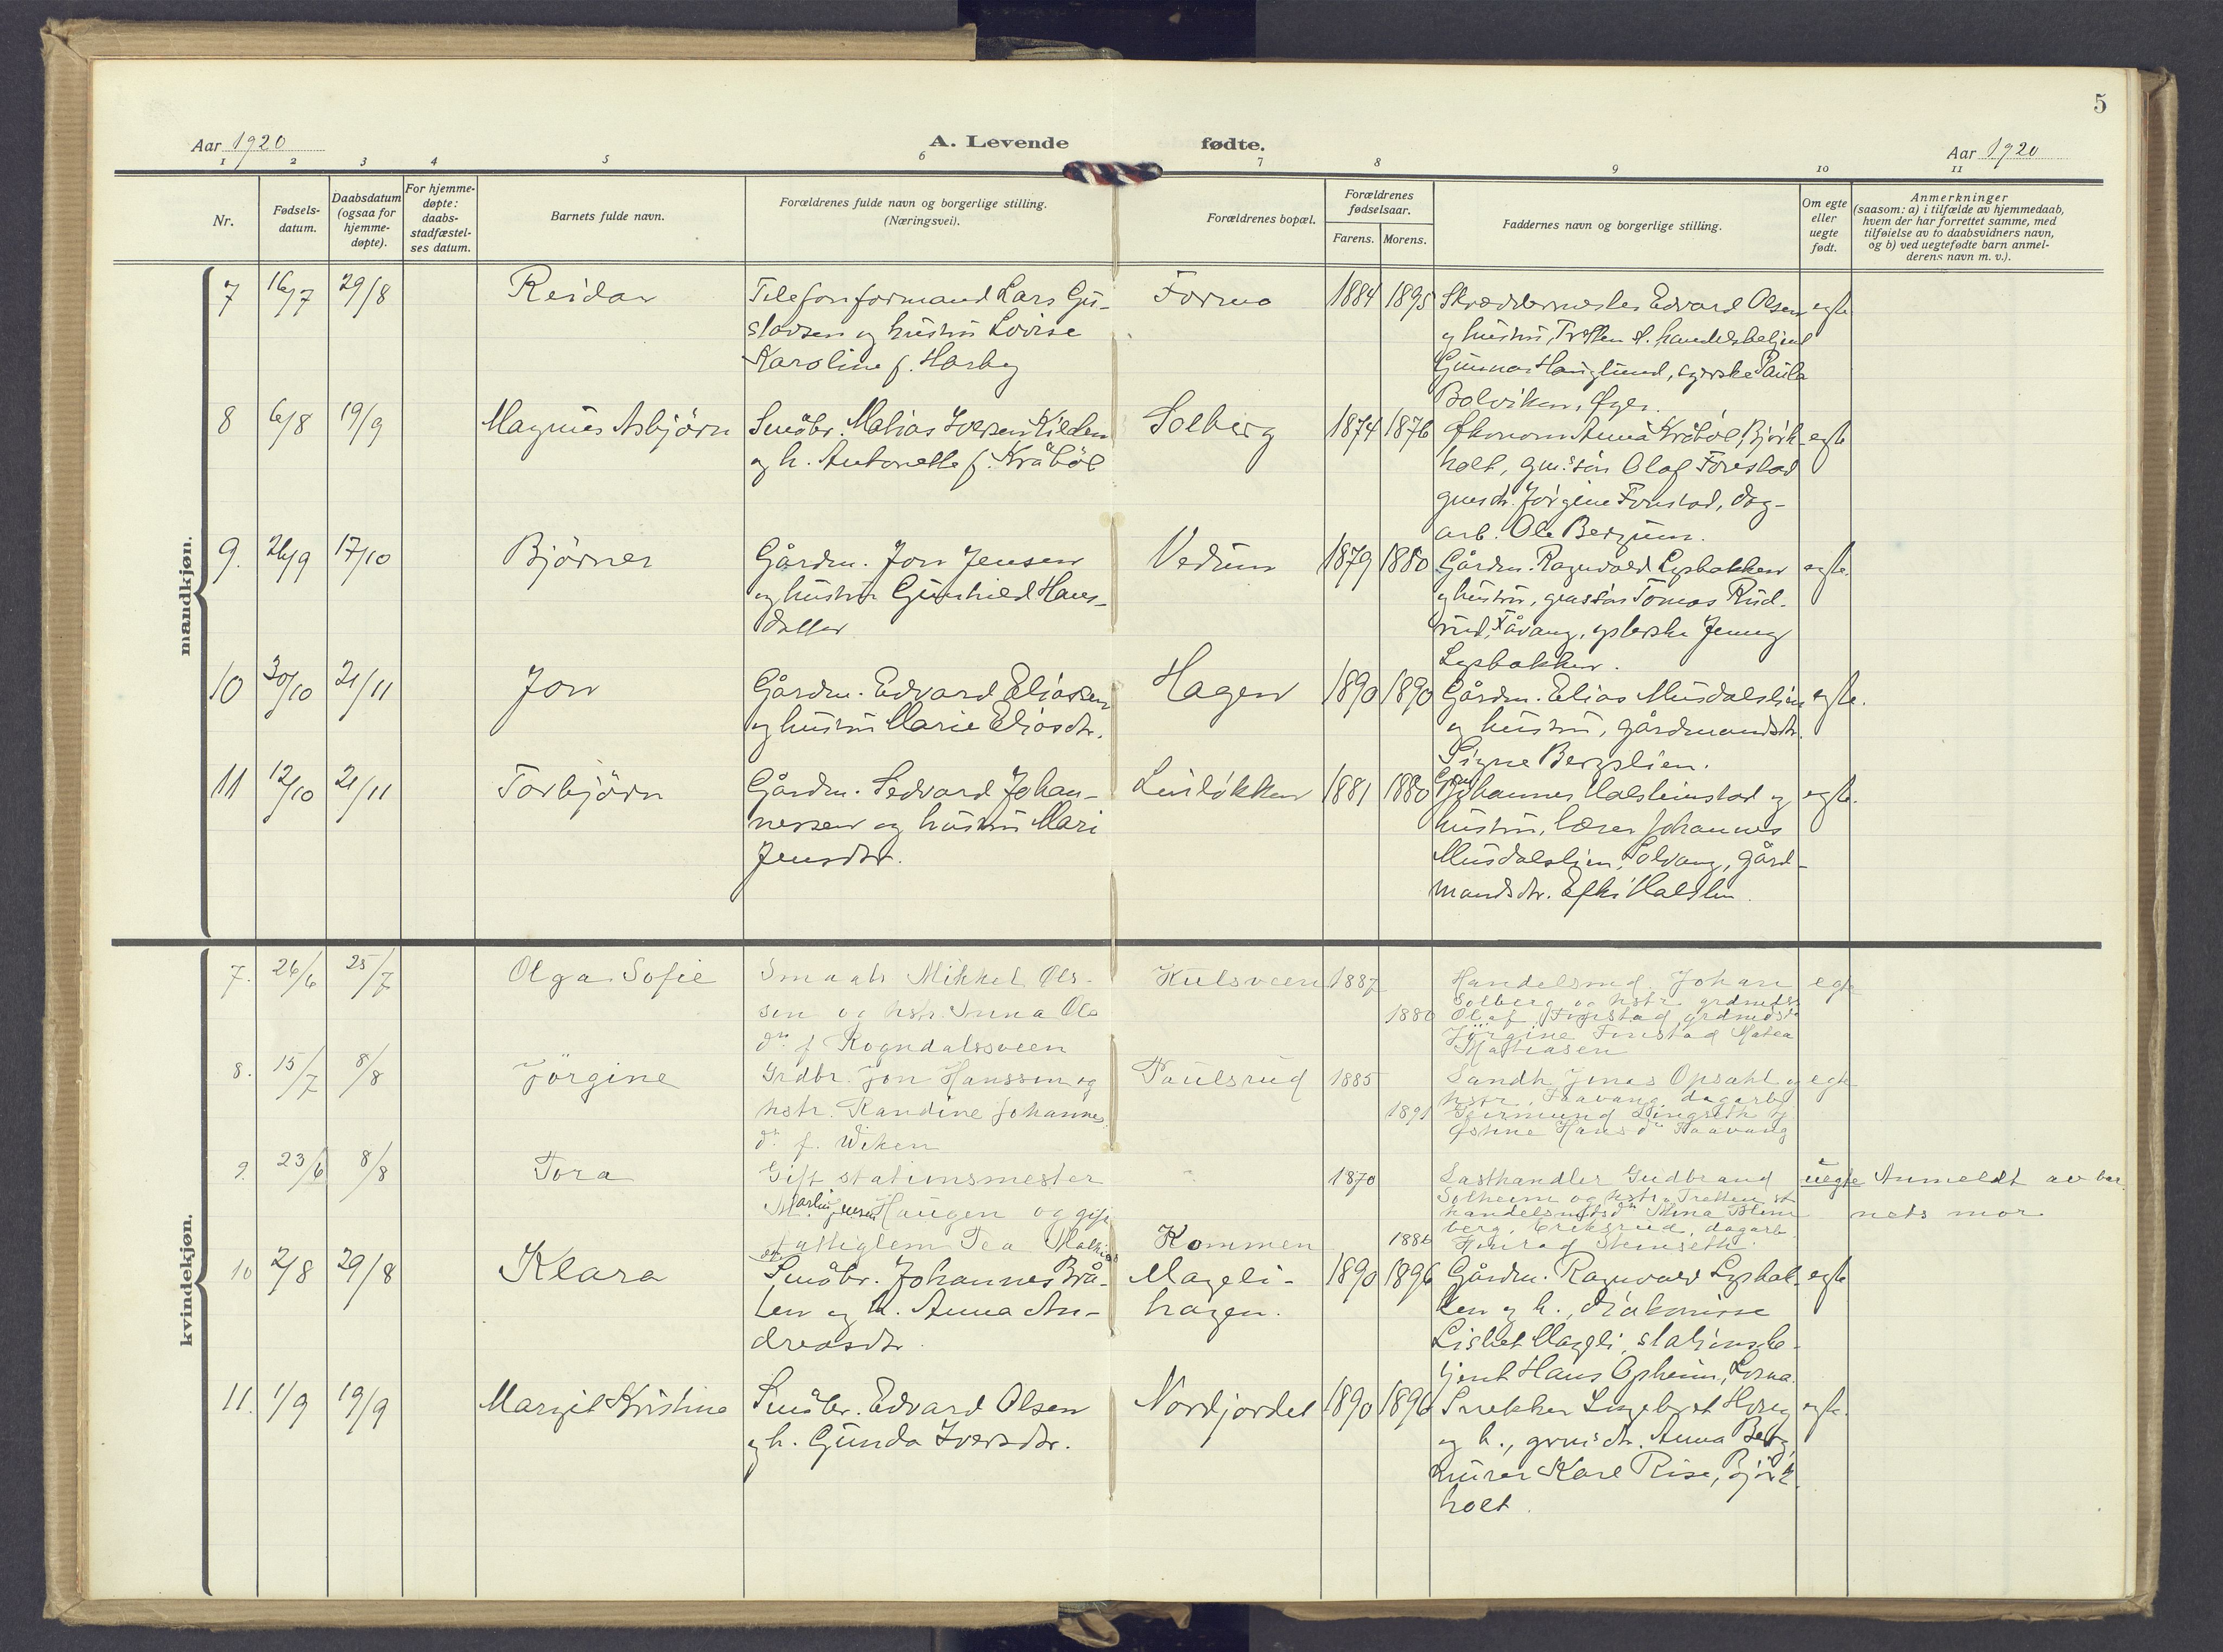 5
Aar 1920
A. Levende fødte.
Aar 1920
1 2 3 4 5 6 7 8 9 10 11
Nr.
Fødsels-
datum.
Daabsdatum
(ogsaa for
hjemme-
døpte).
For hjemme-
døpte:
daabs-
stadfæstel-
ses datum.
Barnets fulde navn.
Forældrenes fulde navn og borgerlige stilling.
(Næringsvei).
Forældrenes bopæl.
Forældrenes
fødselsaar.
Farens. Morens.
Faddernes navn og borgerlige stilling.
Om egte
eller
uegte
født.
Anmerkninger
(saasom: a) i tilfælde av hjemmedaab,
hvem der har forrettet samme, med
tilføielse av to daabsvidners navn,
og b) ved uegtefødte barn anmel-
derens navn m. v.).
mandkjøn.
7 16/7 29/8 Reidar
Telefonformand Lars Gu-
stavsen og hustru Lovise
Karoline f. Harby
Formo 1884 1895
Skræddermester Edvard Olsen
og hustru, Tretten st. handelsbetjent
Gunnar Hauglund, syerske Paula
Bolviken, Øyer.
egte
8 6/8 19/9 Magnus Asbjörn
Småbr. Matias Iversen Kilden
og h. Antonette f. Kråböl
Solberg 1874 1876
Økonom Anna Kråböl, Björk-
holt, gm.sön Olaf Forestad
gmsdr. Jörgine Fonstad, dag-
arb. Ole Berzum.
egte
9. 26/9 17/10 Björner
Gårdm. Jon Jensen
og hustru Gunhild Hans-
datter
Vedum 1879 1880
Gårdm. Ragnvald Lysbakken
og hustru, gmssön Tomas Rud-
rud, Fåvang, Jenny
Lysbakken.
egte.
10 30/10 21/11 Jon
Gårdm. Edvard Eliassen
og hustru Marie Eliasdtr.
Hagen 1890 1890
Gårdm. Elias Musdalslien
og hustru, gårdmandsdtr.
Signe Bergslien.
egte.
11 12/10 21/11 Torbjörn
Gårdm. Sedvard Johan-
nessen og hustru Mari
Jensdtr.
Linlökken 1881 1880
Gm. Johannes Halsteinstad og
hustru, lærer Johannes
Musdalslien, Solvang, gård-
mandsdtr. Halstin.
egte.
kvindekjøn.
7. 26/6 25/7 Olga Sofie
Smaabr Mikkel Ols-
sen og hstr. Inna Ols
dtr f. Rogndalssveen
Kulsveen 1887
1880
Handelsmd. Johan
Solberg og hstr. grdmds
Olaf Forestad grdmdsdtr
Jörgine Finstad Matea
Mathiasen
egte
8. 15/7 8/8 Jörgine
Grdbr. Jon Hanssen og
hstr. Randine Johannes
dtr f. Wiken
Paulsrud 1885
1891
Landh. Jonas Opsahl og
hstr. Faavang dagarb
Geirmund Lingseth og
Østine Hansdtr Faavang
egte
9. 23/6 8/8 Tora
Gift stationsmester
Martin Jensen Haugen og gift
fattiglem Tea Mathias
Kommen
1870
1886
Lasthandler Gudbrand
Solheim og hstr. Tretten st
handelsmdsdtr Mina Blem
berg, Eriksrud, dagarb.
Stenseth.
uegte Anmeldt av bar
nets mor
10 2/8 29/8 Klara
Småbr. Johannes Brå-
ten og h. Anna An-
dreasdtr.
Mageli-
hagen.
1890 1896
Gårdm. Ragnvald Lysbak-
ken og h., diakonisse
Lisbet Mageli, stationsbe-
tjent Hans Opheim, Losna.
egte
11. 1/9 19/9 Margit Kristine
Småbr. Edvard Olsen
og h. Gunda Iversdtr.
Nordjordet 1890 1896
Snekker Ingebret Horey
og h., gmsdtr. Anna Berg,
murer Karl Rise, Björk-
holt.
egte.